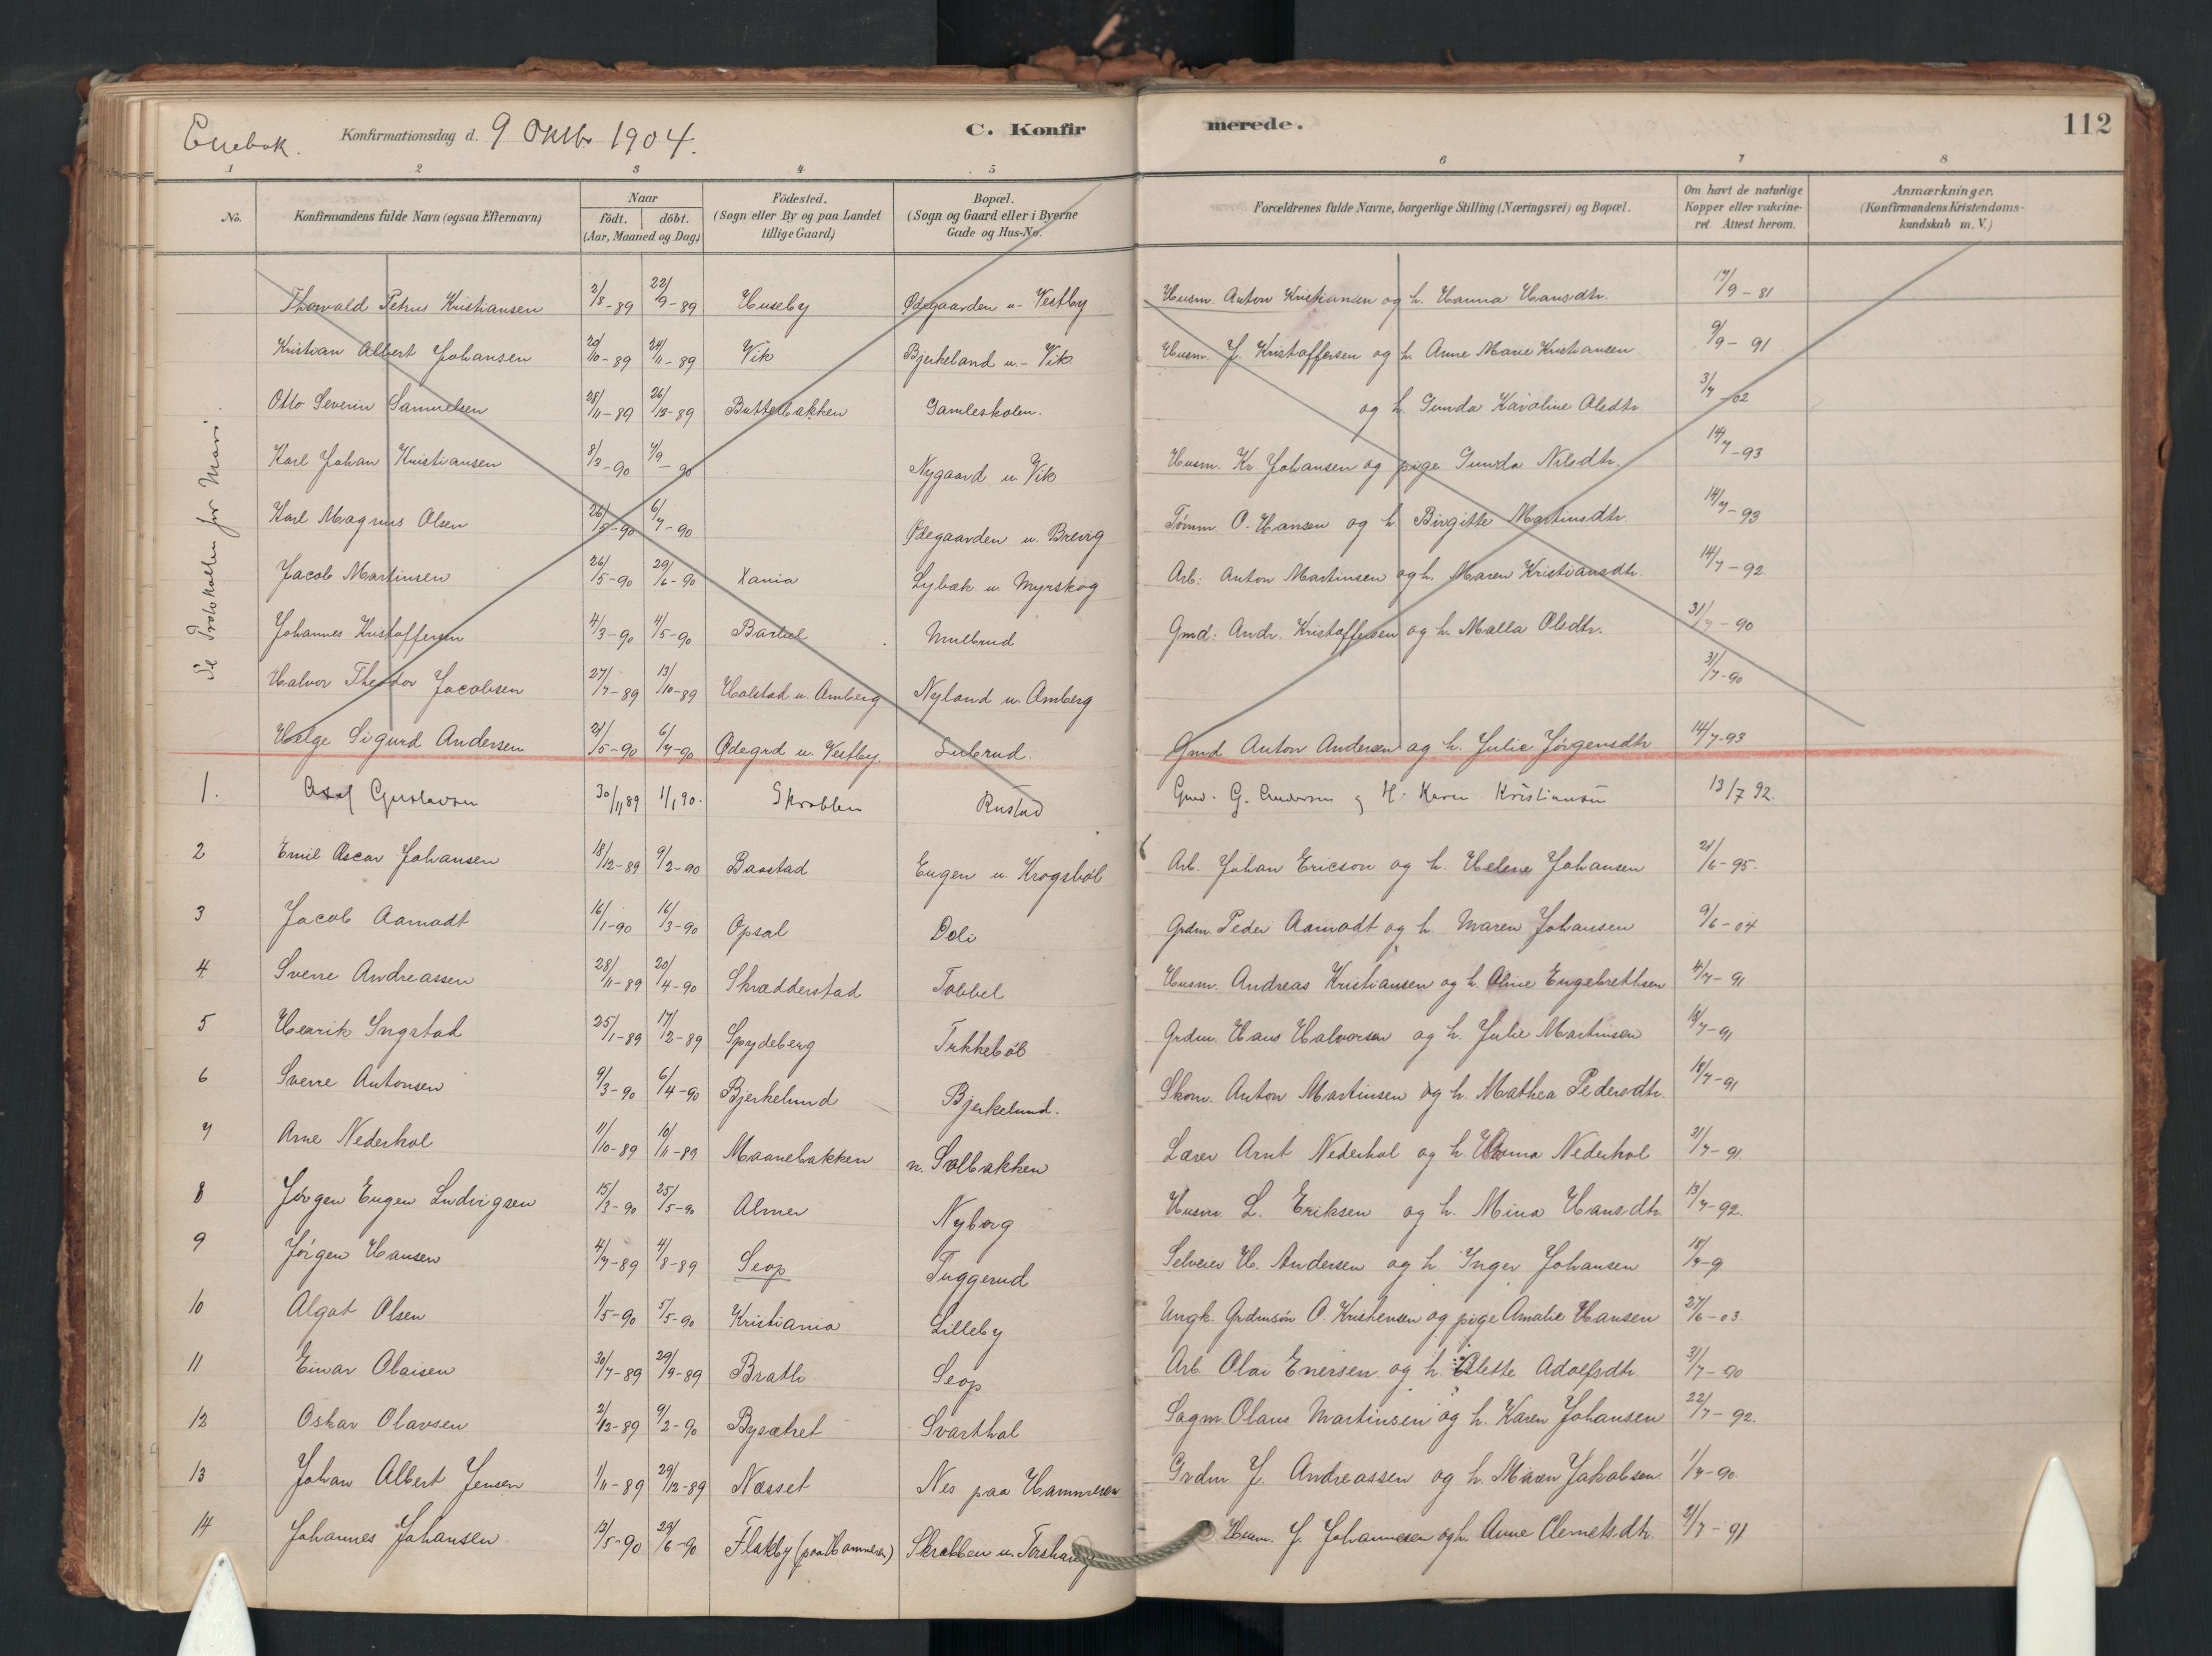 Enebak. Konfirmationsdag d. 9 Oktbr 1904. C. Konfirmerede. 112
1 2 3 4 5 6 7 8
No. Konfirmandens fulde Navn (ogsaa Efternavn) Naar født. døbt. (Aar, Maaned og Dag) Födested. (Sogn eller By og paa Landet tillige Gaard) Bopæl. (Sogn og Gaard eller i Byerne Gade og Hus-No. Forældrenes fulde Navne, borgerlige Stilling (Næringsvei) og Bopæl. Om havt de naturlige Kopper eller vakcineret. Attest herom. Anmærkninger. (Konfirmandens Kristendomskundskab m. V.)
Se Protokollen for Mari
Thorvald Petrus Kristiansen 2/8-89 22/9-89 Huseby Ødegaarden u. Vestby Husm. Anton Kristiansen og h. Hanna Hansdtr. 17/9-81
Kristian Albert Johansen 20/10-89 24/11-89 Vik Bjerkeland u. Vik Husm. J. Kristoffersen og h. Anne Marie Kristiansen 9/9-91
Otto Severin Samuelsen 28/11-89 26/12-89 Büttelbakken Gamleskolen. og h. Gunda Karoline Olsdtr. 3/7-02
Karl Johan Kristiansen 8/3-90 7/9-90 Nygaard u. Vik Husm. Kr. Johansen og pige Gunda Nilsdtr. 14/7-93
Karl Magnus Olsen 26/5-90 6/7-90 Ødegaarden u. Brevig Tømm. O. Hansen og h. Birgitte Martinsdtr. 14/7-93
Jacob Martinsen 26/5-90 29/6-90 Xania Lybæk u. Myrskog Arb: Anton Martinsen og h. Maren Kristiansdtr. 14/7-92
Johannes Kristoffersen 4/3-90 4/5-90 Barbøl Mulbrud Gmd: Andr. Kristoffersen og h. Malla Olsdtr. 31/7-90
Halvor Theodor Jacobsen 27/7-89 13/10-89 Holstad u. Amberg Nyland u. Amberg 31/7-90
Helge Sigurd Andersen 21/5-90 6/7-90 Ødegrd u. Vestby. Lubrud. Gmd Anton Andersen og h. Julie Jørgensdtr 14/7-93
1. Axel Gustavsen 30/11 89 1/1 90. Skrabben Rustad Gmd. G. Andersen og H. Karen Kristiansen 13/7 92.
2 Emil Oscar Johansen 18/12-89 9/2-90 Baastad Eugen u. Krogsbøl Arb. Johan Ericson og h. Helene Johansen 21/6-95.
3 Jacob Aamodt 16/1-90 16/3-90 Opsal Doli Grdm. Peder Aamodt og h. Maren Johansen 9/6-04
4 Sverre Andreassen 28/11-89 20/4-90 Skrædderstad Tobbel Husm. Andreas Kristiansen og h. Oline Engebrettsen 4/7-91
5 Henrik Yngstad 25/1-89 17/2-89 Spydeberg Tykkebøl Grdm. Hans Halvorsen og h. Julie Martinsen 18/7-91
6 Sverre Antonsen 9/3-90 6/4-90 Bjerkelund Bjerkelund. Skom. Anton Martinsen og h. Mathea Pedersdtr. 18/7-91
7 Arne Nederhol 11/10-89 10/11-89 Maanebakken n. Solbakken Lærer Arnt Nederhol og h. Hanna Nederhol 21/7-91
8 Jørgen Eugen Ludvigsen 15/3-90 25/5-90 Almer Nyborg Husm. L. Eriksen og h. Mina Hansdtr. 13/7-92.
9 Jørgen Hansen 4/7-89 4/8-89 Seop Tuggerud Selveier H. Andersen og h. Inger Johansen 18/7-9
10 Algot Olsen 1/5-90 5/5-90 Kristiania Lilleby Ungk. Grdmsøn O. Kristensen og pige Amalie Hansen 27/6-03
11 Einar Olaisen 30/7-89 29/9-89 Bratli Seop Arb. Olai Enersen og h. Olette Adolfsdtr. 31/7-90
12 Oskar Olavsen 2/12-89 9/2-90 Bysætret Svarthol Sagm. Olaus Martinsen og h. Karen Johansen 22/7-92.
13 Johan Albert Jensen 1/11-89 29/12-89 Næsset Nes paa Hammeren Grdm. J. Andreassen og h. Maren Jakobsen 1/7-90
14 Johannes Johansen 12/5-90 29/6-90 Flakby (paa Hammeren) Skrabben u. Torshaug Husm. J. Johannesen og h. Anne Clemetsdtr. 21/7-91